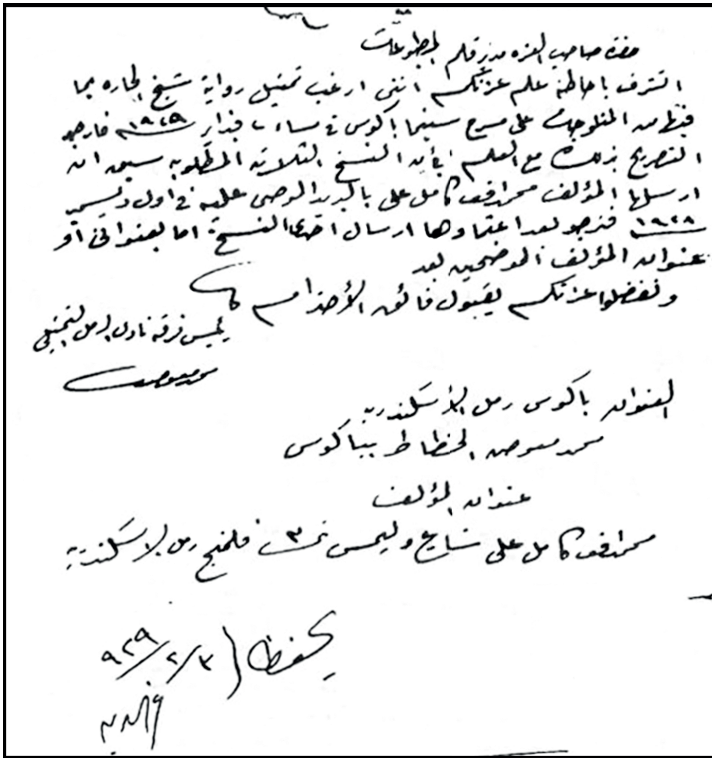 حضرة صاحب العزه مدير قلم المطبوعات
اتشرف باحاطة علم عزتكم اننى ارغب تمثيل رواية شيخ الحاره بما
فيها من المنلوجات على مسرح سينما باكوس فى مساء ٢ فبراير ١٩٢٩ فارجو
التصريح بذلك مع العلم بأن النسخ الثلاثة المطلوبه سبق ان
ارسلها المؤلف محمد كامل على بالبريد الموصى عليه فى اول ديسمبر
١٩٢٨ فنرجو بعد اعتمادها ارسال احدى النسخ اما بعنوانى أو
عنوان المؤلف الموضحين بعد
وتفضلوا عزتكم بقبول فائق الأحترام
رئيس فرقة نادى الرمل التمثيلى
محمد معوض
العنوان باكوس رمل الأسكندرية
محمد معوض الخطاط بباكوس
عنوان المؤلف
محمد كامل على شارع ويلسن نمرة ٣ فلمنج رمل الاسكندرية
يحفظ
٩٢٩/٢/٣